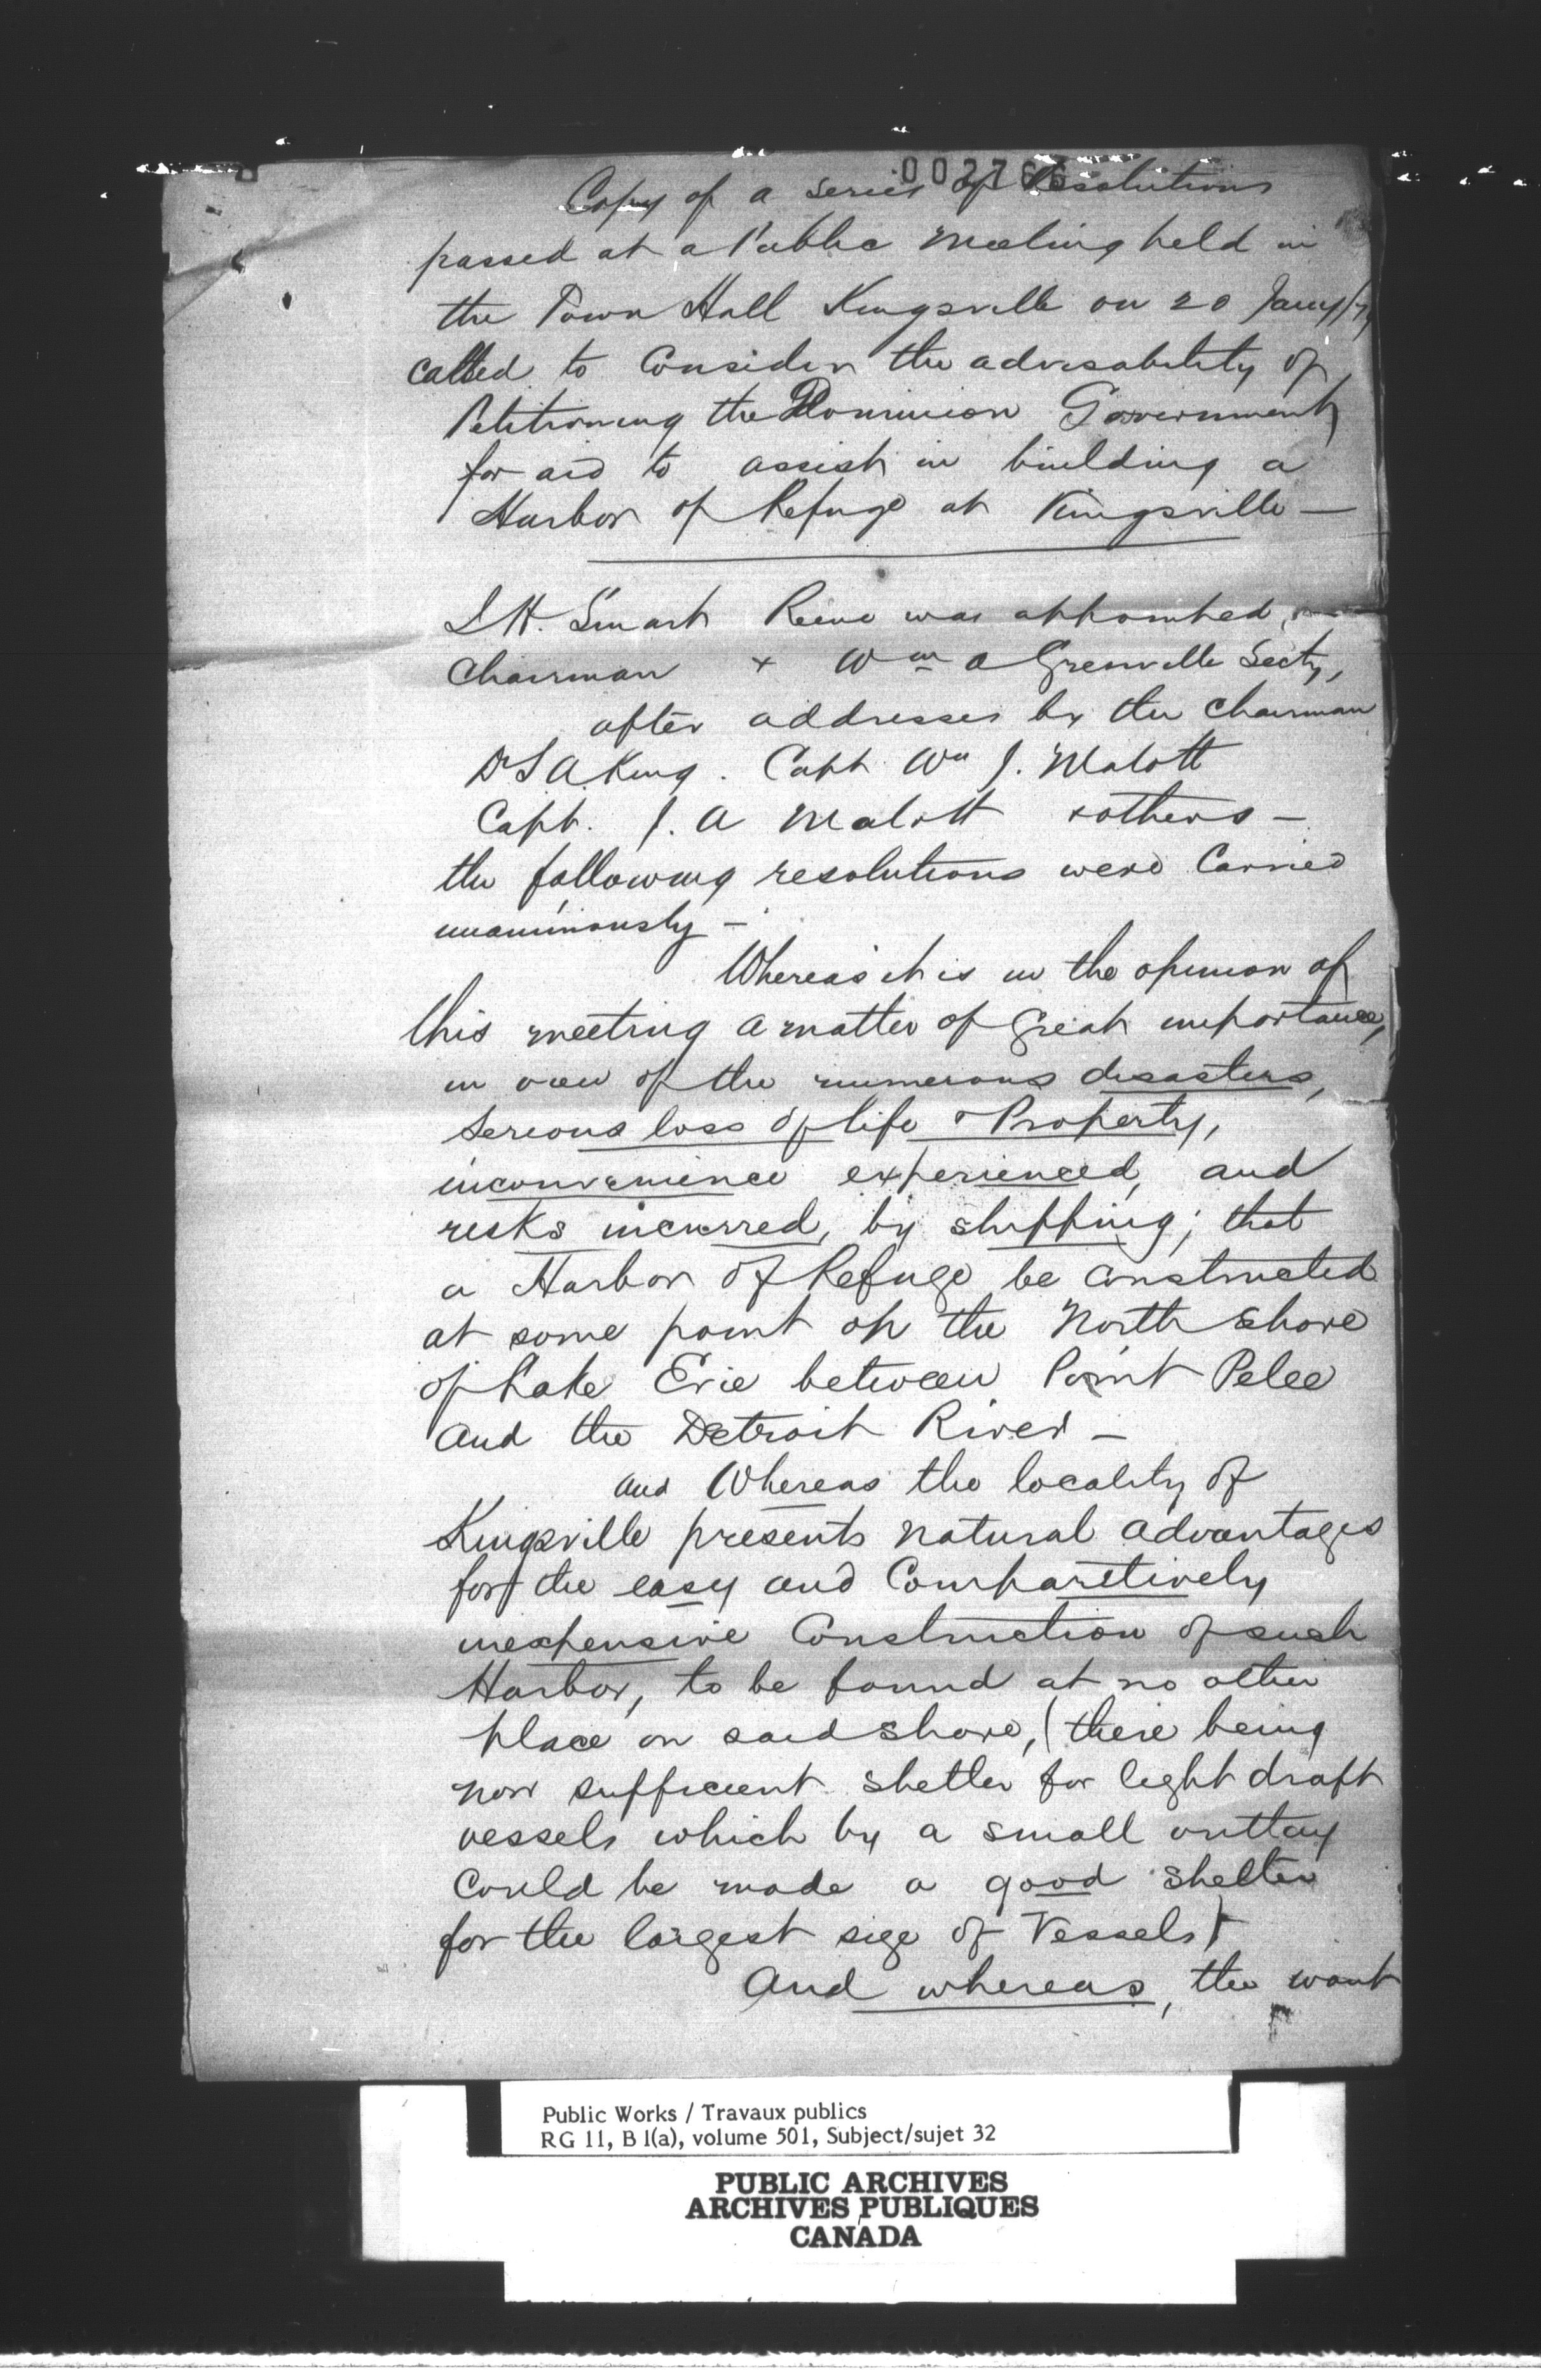 002766
Copy of a series of Resolutions
passed at a Public Meeting held in
the Town Hall Kingsville on 20 Jany/7
called to Consider the advisability of
Petitioning the Dominion Government
for aid to assist in building a
Harbor of Refuge at Kingsville —
J H. Smart Reeve was appointed
Chairman + Wm A Grenville Secty,
after addresses by the Chairman
Dr S A King. Capt. Wm J. Malott
Capt. J. A Malott + others —
the following resolutions were Carried
unanimously —
Whereas it is in the opinion of
this meeting a matter of Great importance,
in view of the numerous disasters,
serious loss of life & Property,
inconvenience experienced, and
risks incurred, by shipping; that
a Harbor of Refuge be constructed
at some point on the North Shore
of Lake Erie between Point Pelee
and the Detroit River —
and Whereas the locality of
Kingsville presents natural advantages
for the easy and Comparitively
inexpensive Construction of such
Harbor, to be found at no other
place on said shore, (there being
now sufficient shelter for light draft
vessels which by a small outlay
Could be made a good shelter
for the largest size of Vessels)
And whereas, the want
Public Works / Travaux publics
RG 11, B 1(a), volume 501, Subject/sujet 32
PUBLIC ARCHIVES
ARCHIVES PUBLIQUES
CANADA